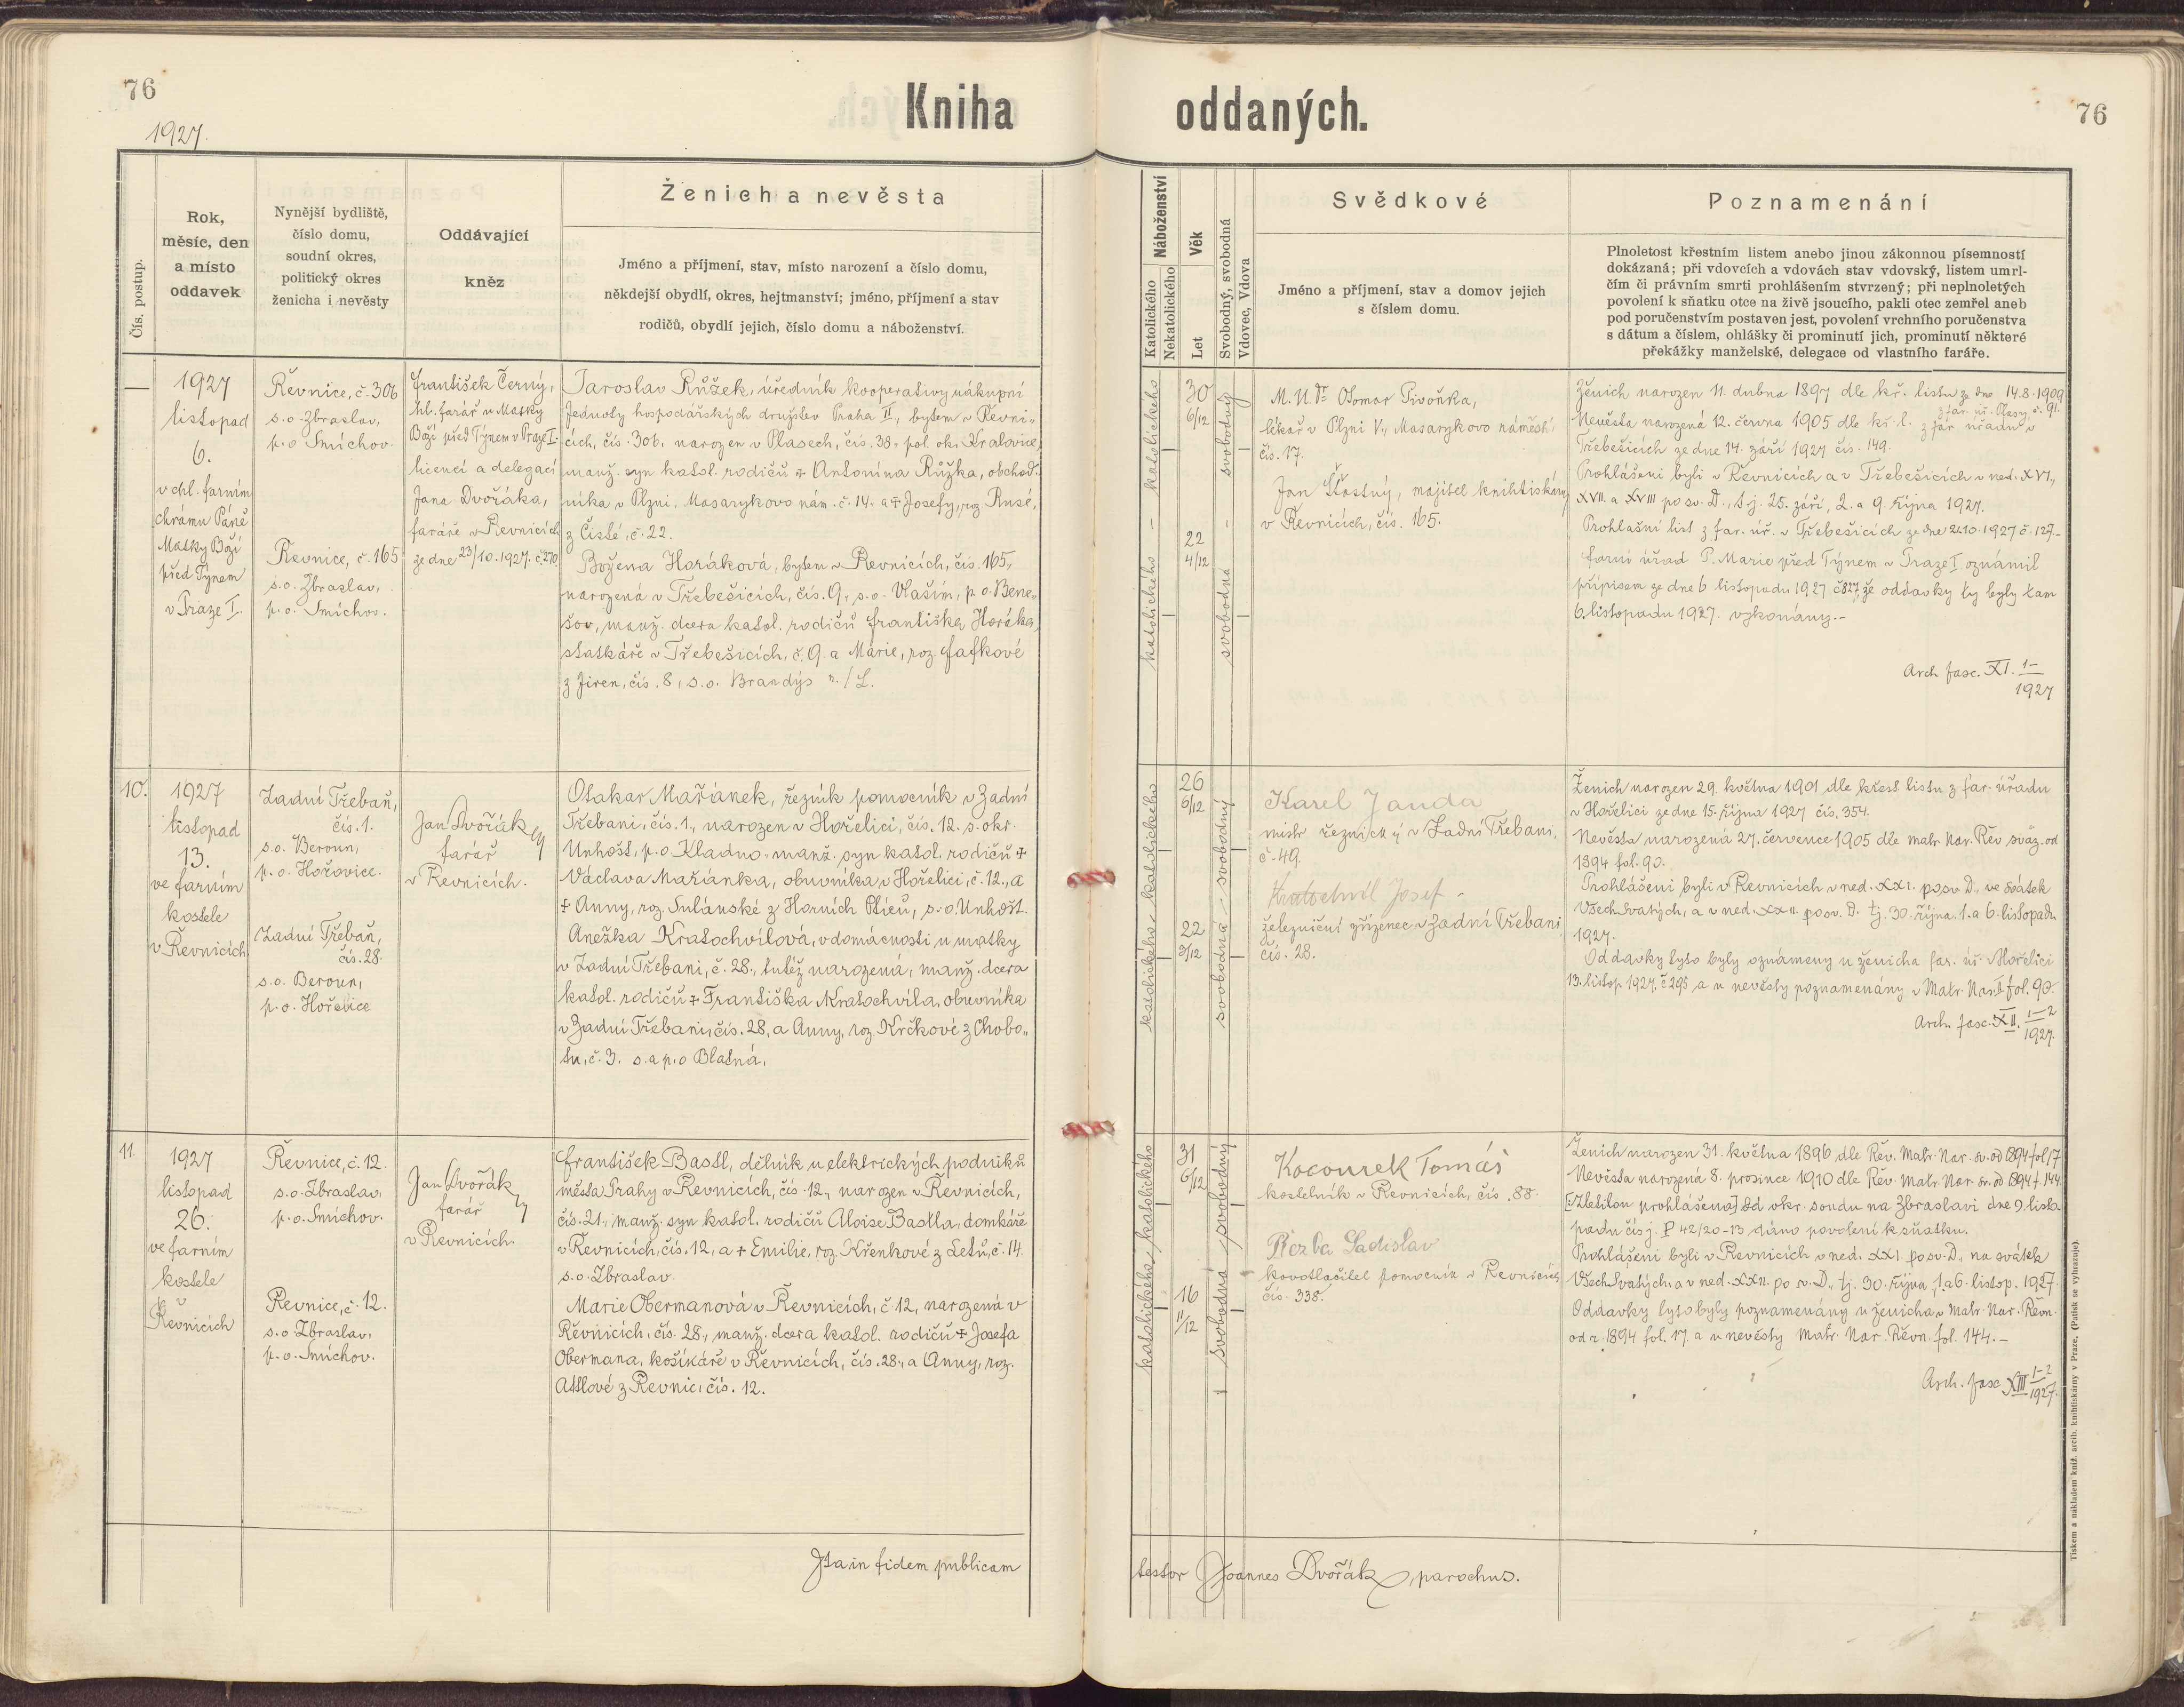 76
1927.
Kniha oddaných.
76
Čís. postup.
Rok,
měsíc, den
a místo
oddavek
Nynější bydliště,
číslo domu,
soudní okres,
politický okres
ženicha i nevěsty
Oddávající
kněz
Ženich a nevěsta
Jméno a příjmení, stav, místo narození a číslo domu,
někdejší obydlí, okres, hejtmanství; jméno, příjmení a stav
rodičů, obydlí jejich, číslo domu a náboženství.
Náboženství
Katolického
Nekatolického
Věk
Let
Svobodný, svobodná
Vdovec, Vdova
Svědkové
Jméno a příjmení, stav a domov jejich
s číslem domu.
Poznamenání
Plnoletost křestním listem anebo jinou zákonnou písemností
dokázaná; při vdovcích a vdovách stav vdovský, listem umrl-
čím či právním smrti prohlášením stvrzený; při neplnoletých
povolení k sňatku otce na živě jsoucího, pakli otec zemřel aneb
pod poručenstvím postaven jest, povolení vrchního poručenstva
s dátum a číslem, ohlášky či prominutí jich, prominutí některé
překážky manželské, delegace od vlastního faráře.
—
1927
listopad
6.
v chl. farním
chrámu Páně
Matky Boží
před Týnem
v Praze I.
Řevnice, č. 306
s.o. Zbraslav,
p.o. Smíchov.
Řevnice, č. 165
s.o. Zbraslav,
p.o. Smíchov.
František Černý,
hl. farář u Matky
Boží před Týnem v Praze I.
licencí a delegací
Jana Dvořáka,
faráře v Řevnicích
ze dne 23/10. 1927. č. 270
Jaroslav Růžek, úředník kooperativy nákupní
Jednoty hospodářských družstev Praha II., bytem v Řevni-
cích, čís. 306, narozen v Plasech, čís. 38, pol. ok. Kralovice,
manž. syn katol. rodičů + Antonína Růžka, obchod-
níka v Plzni, Masarykovo nám. č. 14. a + Josefy, roz. Rusé,
z Čisté, č. 22.
Božena Horáková, bytem v Řevnicích, čís. 165,
narozená v Třebešicích, čís. 9, s.o. Vlašim, p.o. Bene-
šov, manž. dcera katol. rodičů Františka Horáka,
statkáře v Třebešicích, č. 9 a Marie, roz. Fafkové
z Jiren, čís. 8, s.o. Brandýs n./L.
katolického - katolického
30
6/12
22
4/12
svobodný
svobodná
M.U.Dr. Otomar Pivoňka,
lékař v Plzni V., Masarykovo náměstí
čís. 17.
Jan Šťastný, majitel knihtiskárny
v Řevnicích, čís. 165.
Ženich narozen 11. dubna 1897 dle kř. listu ze dne 14.8.1909
z far. úř. Plasy, č. 91.
Nevěsta narozená 12. června 1905 dle kř. l. z far. úřadu v
Třebešicích ze dne 14. září 1927 čís. 149.
Prohlášeni byli v Řevnicích a v Třebešicích v ned. XVI.,
XVII. a XVIII po sv. D., tj. 25. září, 2. a 9. října 1927.
Prohlašní list z far. úř. v Třebešicích ze dne 22.10.1927 č. 127.-
Farní úřad P. Marie před Týnem v Praze I. oznámil
přípisem ze dne 6 listopadu 1927 č 827, že oddavky ty byly tam
6. listopadu 1927. vykonány.-
Arch. fasc. XI. 1-
1927
10.
1927
listopad
13.
ve farním
kostele
v Řevnicích
Zadní Třebaň,
čís. 1.
s.o. Beroun,
p.o. Hořovice.
Zadní Třebaň,
čís. 28.
s.o. Beroun,
p.o. Hořovice
Jan Dvořák
farář
v Řevnicích.
Otakar Mařánek, řezník pomocník v Zadní
Třebani, čís. 1., narozen v Hořelici, čís. 12. s. okr.
Unhošť, p.o. Kladno, manž. syn katol. rodičů +
Václava Mařánka, obuvníka v Hořelici, č. 12., a
+ Anny, roz. Sulánské z Horních Ptíců, s.o. Unhošť.
Anežka Kratochvílová, v domácnosti u matky
v Zadní Třebani, č. 28., tutéž narozená, manž. dcera
katol. rodičů + Františka Kratochvíla, obuvníka
v Zadní Třebani, čís. 28, a Anny, roz. Krčkové z Chobo-
tu, č. 3. s. a p.o Blatná.
katolického - katolického
26
6/12
22
3/12
svobodná - svobodný
Karel Janda
mistr řeznický v Zadní Třebani,
č. 49.
Kratochvíl Josef -
železniční zřízenec v Zadní Třebani
čís. 28.
Ženich narozen 29. května 1901 dle křest listu z far. úřadu
v Hořelici ze dne 15. října 1927 čís. 354.
Nevěsta narozená 27. července 1905 dle matr. Nar. Řev svaz. od
1894 fol. 90.
Prohlášeni byli v Řevnicích v ned. XXI. po sv. D., ve svátek
Všech Svatých, a v ned. XXII. po sv. D. tj. 30. října, 1. a 6. listopadu
1927.
Oddavky tyto byly oznámeny u ženicha far. úř. Hořelici
13. listop. 1927. č 295 a u nevěsty poznamenány v Matr. Nar. I fol. 90.
Arch. fasc. XII. 1-2
1927.
11.
1927
listopad
26.
ve farním
kostele
v
Řevnicích
Řevnice, č. 12.
s.o. Zbraslav,
p.o. Smíchov.
Řevnice, č. 12.
s.o. Zbraslav,
p.o. Smíchov.
Jan Dvořák
farář
v Řevnicích.
František Bastl, dělník u elektrických podniků
města Prahy v Řevnicích, čís. 12, narozen v Řevnicích,
čís. 21., manž. syn katol. rodičů Aloise Bastla, domkáře
v Řevnicích, čís. 12, a + Emilie, roz. Křenkové z Letů, č. 14.
s.o. Zbraslav.
Marie Obermanová v Řevnicích, č. 12, narozená v
Řevnicích, čís. 28., manž. dcera katol. rodičů + Josefa
Obermana, košíkáře v Řevnicích, čís. 28., a Anny, roz.
Attlové z Řevnic, čís. 12.
katolického, katolického
31
6/12
16
11/12
svobodná svobodný
Kocourek Tomáš
kostelník v Řevnicích, čís. 88.
Řezba Ladislav
kovotlačitel pomocník v Řevnicích
čís. 338.
Ženich narozen 31. května 1896 dle Řev. Matr. Nar. sv. od 1894 fol 17
Nevěsta narozená 8. prosince 1910 dle Řev. Matr. Nar. sv. od 1894 f. 144.
[Zletilou prohlášena] Od okr. soudu na Zbraslavi dne 9. listo
padu čís j. P 42/20-13 dáno povolení k sňatku.
Prohlášeni byli v Řevnicích v ned. XXI. po sv. D., na svátek
Všech Svatých, a v ned. XXII. po sv. D., tj. 30. října, 1. a 6. listop. 1927.
Oddavky tyto byly poznamenány u ženicha v Matr. Nar. Řevn.
od r. 1894 fol. 17. a u nevěsty Matr. Nar. Řevn. fol. 144. -
Arch. fasc. XIII 1-2
1927.
Ita in fidem publicam testor Joannes Dvořák, parochus.
Tiskem a nákladem kníž. arcib. knihtiskárny v Praze. (Patisk se vyhrazuje).